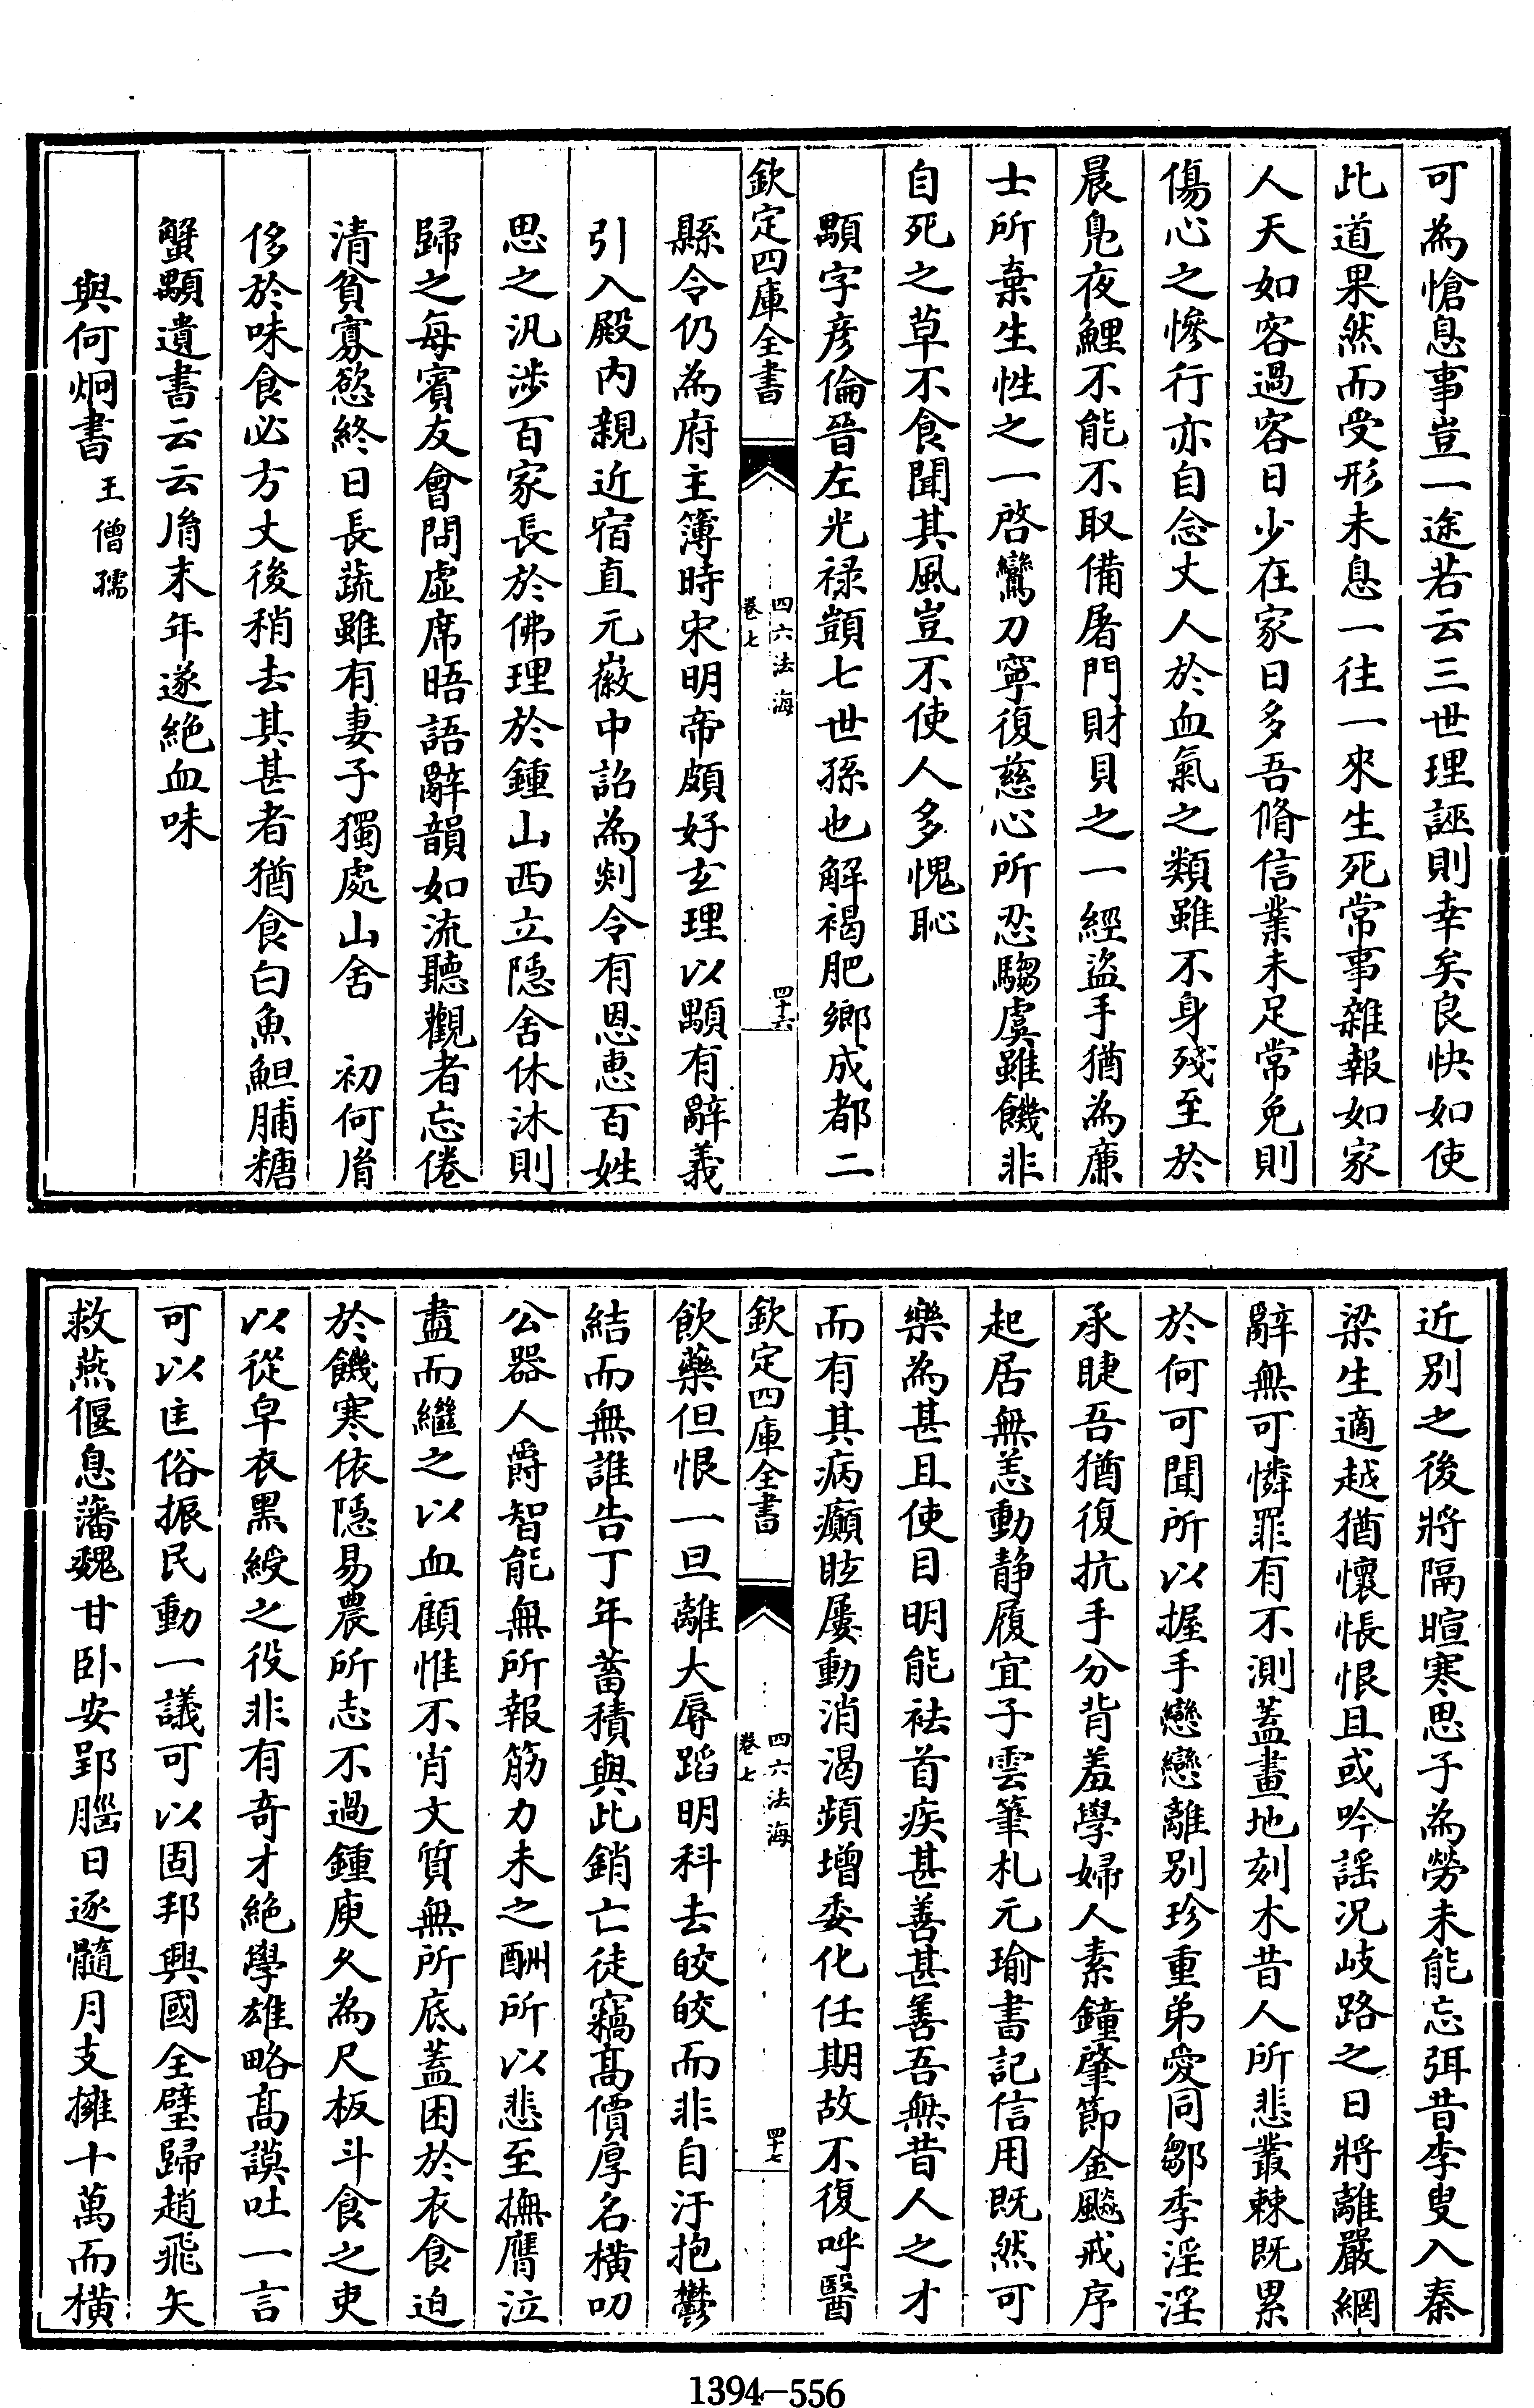 可為愴息事豈一途若云三世理誣則幸矣良快如使
此道果然而受形未息一往一來生死常事雜報如家
人天如客過客日少在家日多吾脩信業未足常免則
傷心之慘行亦自念丈人於血氣之類雖不身殘至於
晨鳧夜鯉不能不取備屠門財貝之一經盜手猶為廉
士所棄生性之一啓鸞刀寧復慈心所忍騶虞雖饑非
自死之草不食聞其風豈不使人多愧恥
顒字彥倫晉左光禄顗七世孫也解褐肥鄉成都二
欽定四庫全書
四六法海
卷七
四十六
縣令仍為府主簿時宋明帝頗好玄理以顒有辭義
引入殿内親近宿直元徽中詔為剡令有恩惠百姓
思之汎涉百家長於佛理於鍾山西立隱舍休沐則
歸之每賓友會問虛席晤語辭韻如流聽觀者忘倦
清貧寡慾終日長蔬雖有妻子獨處山舍　初何胤
侈於味食必方丈後稍去其甚者猶食白魚䱇脯糖
蟹顒遺書云云胤末年遂絶血味
與何炯書王僧孺
近別之後將隔暄寒思子為勞未能忘弭昔李叟入秦
梁生適越猶懷悵恨且或吟謡况岐路之日將離嚴網
辭無可憐罪有不測蓋畫地刻木昔人所悲叢棘既累
於何可聞所以握手戀戀離別珍重弟愛同鄒季淫淫
承睫吾猶復抗手分背羞學婦人素鐘肇節金飈戒序
起居無恙動静履宜子雲筆札元瑜書記信用既然可
樂為甚且使目明能袪首疾甚善甚善吾無昔人之才
而有其病癲眩屢動消渴頻增委化任期故不復呼醫
欽定四庫全書
四六法海
卷七
四十七
飲藥但恨一旦離大辱蹈明科去皎皎而非自汙抱鬱
結而無誰告丁年蓄積與此銷亡徒竊高價厚名橫叨
公器人爵智能無所報筋力未之酬所以悲至撫膺泣
盡而繼之以血顧惟不肖文質無所底蓋困於衣食迫
於饑寒依隱易農所志不過鍾庾久為尺板斗食之吏
以從皁衣黑綬之役非有奇才絶學雄略高謨吐一言
可以匡俗振民動一議可以固邦興國全璧歸趙飛矢
救燕偃息藩魏甘卧安郢腦日逐髓月支擁十萬而橫
1394—556